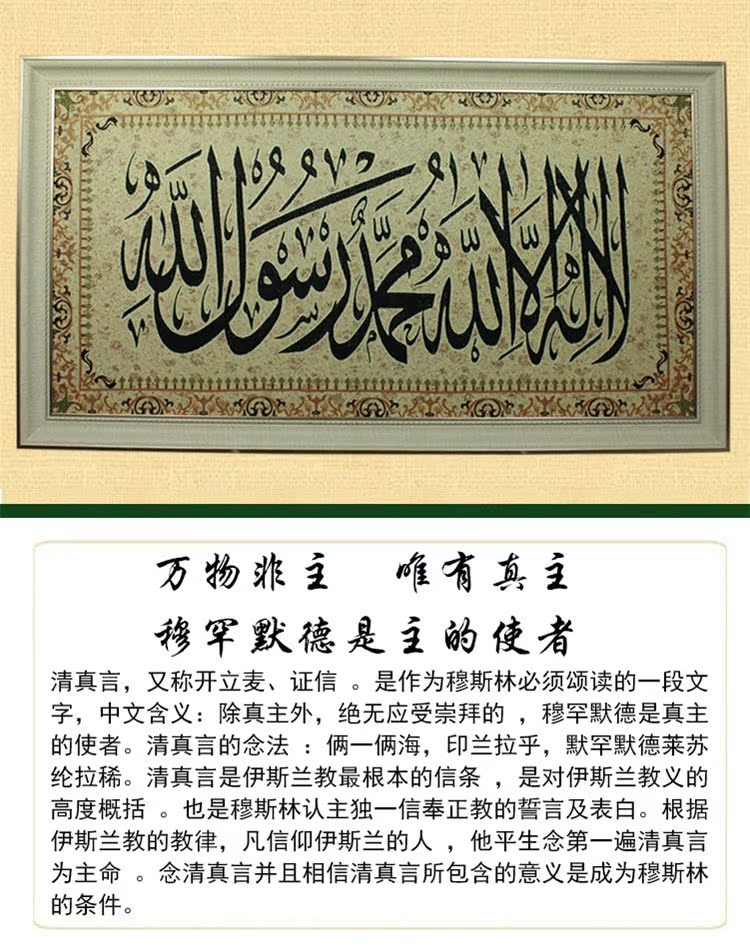 لا إله إلا الله محمد رسول الله
万物非主 唯有真主
穆罕默德是主的使者
清真言，又称开立麦、证信 。是作为穆斯林必须颂读的一段文
字，中文含义：除真主外，绝无应受崇拜的 ，穆罕默德是真主
的使者。清真言的念法 ：俩一俩海，印兰拉乎，默罕默德莱苏
纶拉稀。清真言是伊斯兰教最根本的信条 ，是对伊斯兰教义的
高度概括 。也是穆斯林认主独一信奉正教的誓言及表白。根据
伊斯兰教的教律，凡信仰伊斯兰的人 ，他平生念第一遍清真言
为主命 。念清真言并且相信清真言所包含的意义是成为穆斯林
的条件。